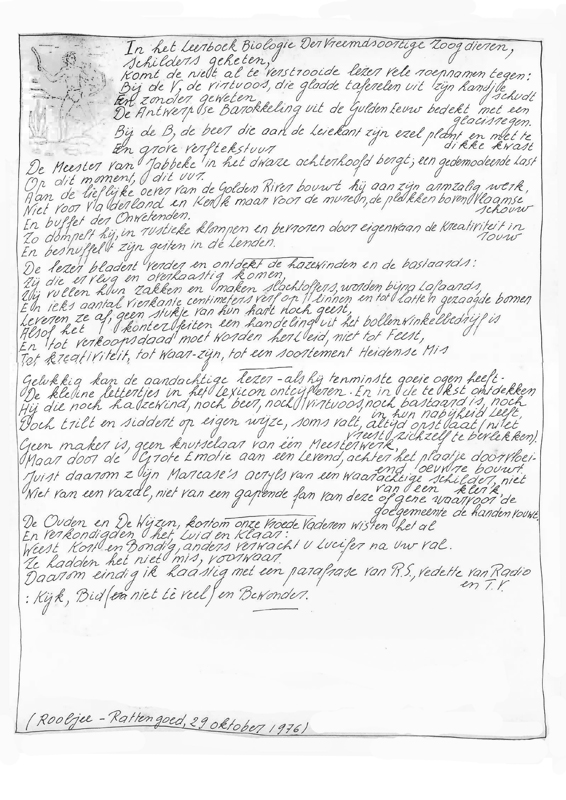 In het Leerboek Biologie Der Vreemdsoortige Zoogdieren,
Schilders geheten,
Komt de niet al te verstrooide lezer vele roepnamen tegen:
Bij de V, de virtuoos, die gladde taferelen uit zijn handje
schudt
En zonder geweten
De Antwerpse Barokkeling uit de Gulden Eeuw bedekt met een
glacisregen.
Bij de B, de beer die aan de Leiekant zijn ezel plant en met te
dikke kwast
En grove verftekstuur
De Meester van Jabbeke in het dwaze achterhoofd bergt; een gedemodeerde Last
Op dit moment, dit uur.
Aan de lieflijke oever van de Golden River bouwt hij aan zijn armzalig werk,
Niet voor Vaderland en Kerk maar voor de muren, de plekken boven Vlaamse
schouw
En buffet des Onwetenden.
Zo dompelt hij, in rustieke klompen en bevroren door eigenwaan de Kreativiteit in
rouw
En beshuffelt zijn gesten in de Lenden.
De lezer bladert verder en ontdekt de hazewinden en de bastaards:
Zij die er vlug en overhaastig komen,
Zij vullen hun zakken en maken slachtoffers, worden bijna Lafaards,
En iets aantal vierkante centimeters verf op linnen en tot latten gezaagde bomen
Leveren ze af, geen stukje van hun hart noch geest,
Alsof het konterfeiten een handeling uit het bollenwinkelbedrijf is
En tot verkoopsdaad moet worden herleid, niet tot Feest,
Tot kreativiteit, tot Waar-zijn, tot een soortement Heidense Mis
Gelukkig kan de aandachtige lezer - als hij tenminste goeie ogen heeft -
De kleine lettertjes in het Lexicon ontcijferen. En in de tekst ontdekken
Hij die noch hazewind, noch beer, noch virtuoos, noch bastaard is, noch
in hun nabijheid leeft,
Doch trilt en siddert op eigen wijze, soms valt, altijd opstaat (uit
vrees zichzelf te bevlekken).
Geen maker is, geen knutselaar van één Meesterwerk
Maar door de Grote Emotie aan een Levend, achter het plaatje doorvloei-
end oeuvre bouwt.
Juist daarom zijn Marcase's acryls van een waarachtige schilder, niet
van een klerk,
Niet van een vazal, niet van een gapende fan van deze of gene waarvoor de
goegemeente de handen vouwt.
De Ouden en De Wijzen, kortom onze Vroede Vaderen wisten het al
En verkondigden het, Luid en Klaar:
Weest Kort en Bondig, anders verwacht u Lucifer na uw val.
Ze hadden het niet mis, voorwaar
Daarom eindig ik haastig met een parafrase van R.S., vedette van Radio
en T.V.
: Kijk, Bid (en niet te veel) en Bewonder.
(Rooljee - Rattengoed, 29 oktober 1976)